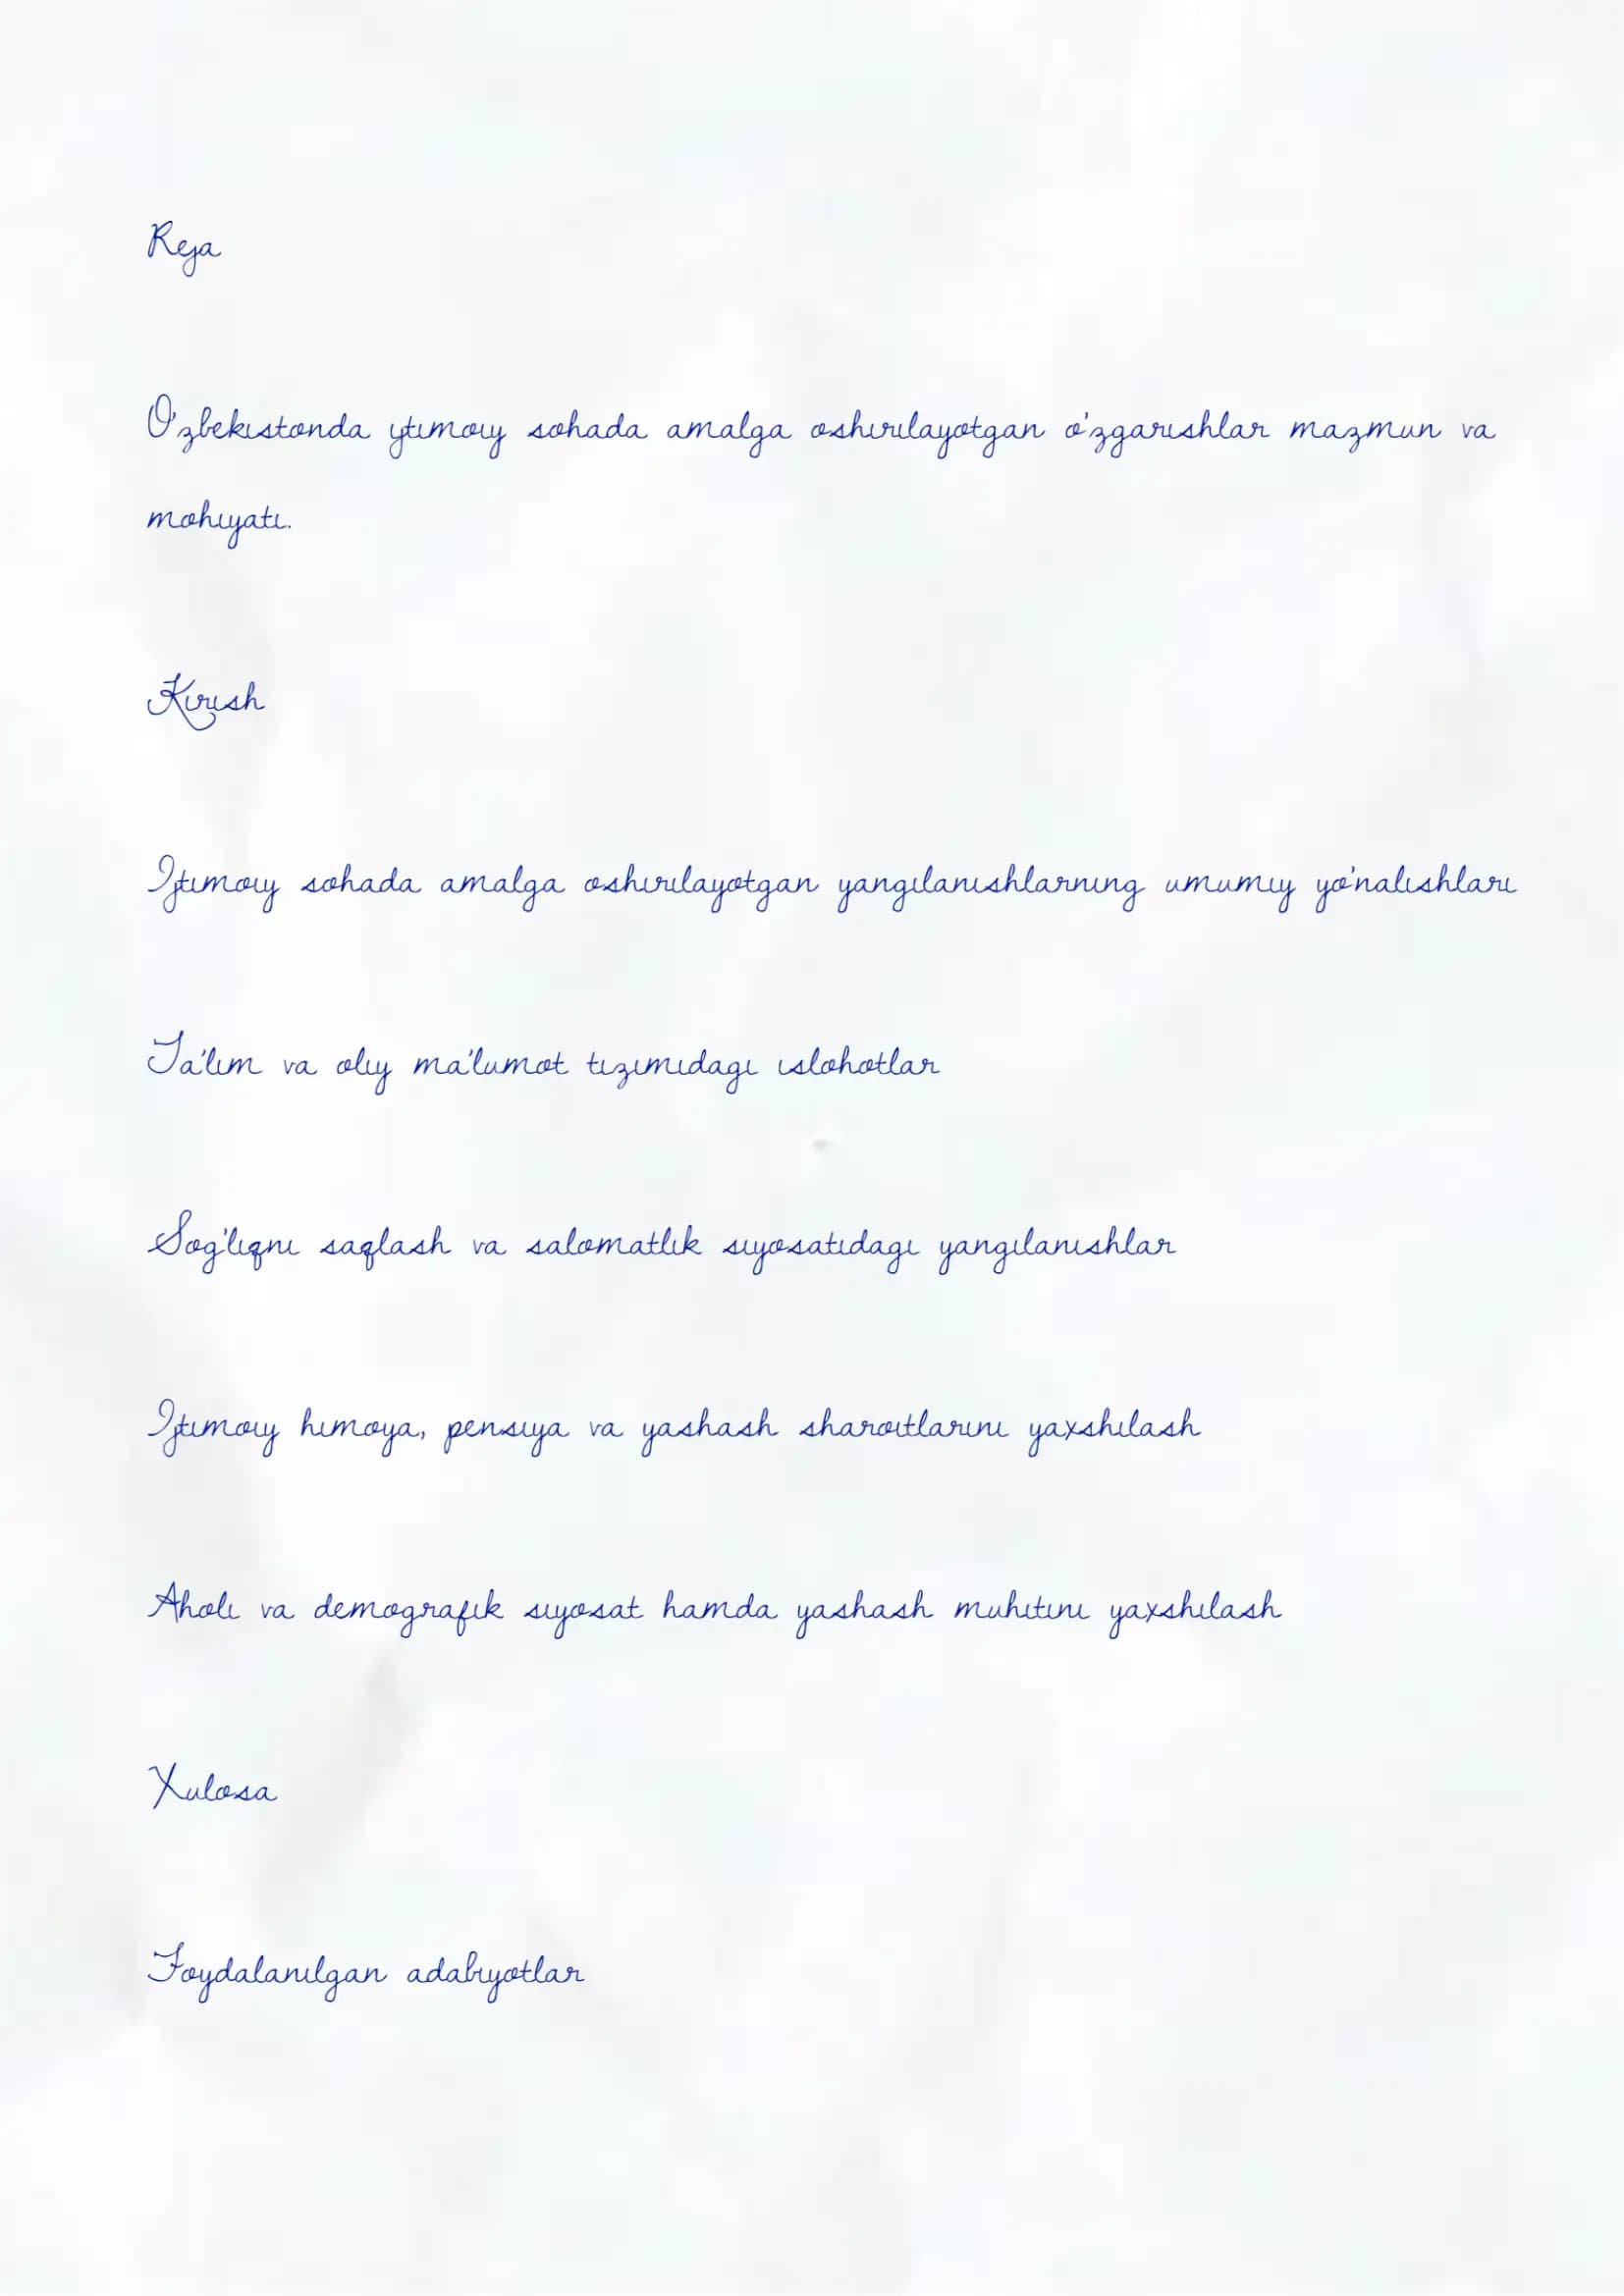 Reja
O'zbekistonda ytimoiy sohada amalga oshirilayotgan o'zgarishlar mazmun va
mohiyati.
Kirish
Ijtimoiy sohada amalga oshirilayotgan yangilanishlarning umumiy yo'nalishlari
Ta'lim va oliy ma'lumot tizimidagi islohotlar
Sog'liqni saqlash va salomatlik siyosatidagi yangilanishlar
Ijtimoiy himoya, pensiya va yashash sharoitlarini yaxshilash
Aholi va demografik siyosat hamda yashash muhitini yaxshilash
Xulosa
Foydalanilgan adabiyotlar